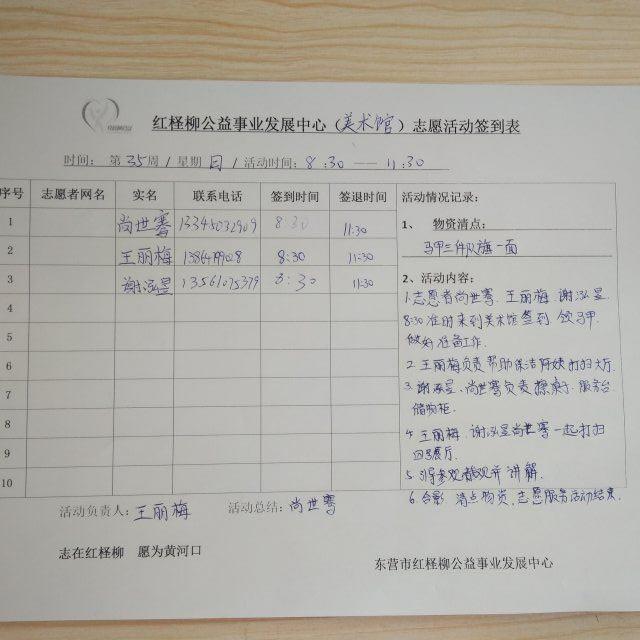 红柽柳公益事业发展中心（美术馆）志愿活动签到表
时间： 第 35 周 / 星期 日 / 活动时间：8:30 —— 11:30
序号 志愿者网名 实名 联系电话 签到时间 签退时间 活动情况记录：
1 尚世骞 13345032909 8:30 11:30
2 王丽梅 8:30 11:30
3 谢泓昱 13561075379 8:30 11:30
4
5
6
7
8
9
10
1、 物资清点：
马甲三件队旗一面
2、活动内容：
1.志愿者尚世骞.王丽梅.谢泓昱.
8:30准时来到美术馆签到.领马甲.
做好准备工作.
2.王丽梅负责帮助保洁阿姨打扫大厅.
3.谢泓昱.尚世骞负责擦桌子.服务台
储物柜.
4.王丽梅.谢泓昱尚世骞一起打扫
展厅.
5.引导参观者观并讲解.
6.合影 清点物资.志愿服务活动结束.
活动负责人：王丽梅 活动总结：尚世骞
志在红柽柳 愿为黄河口
东营市红柽柳公益事业发展中心